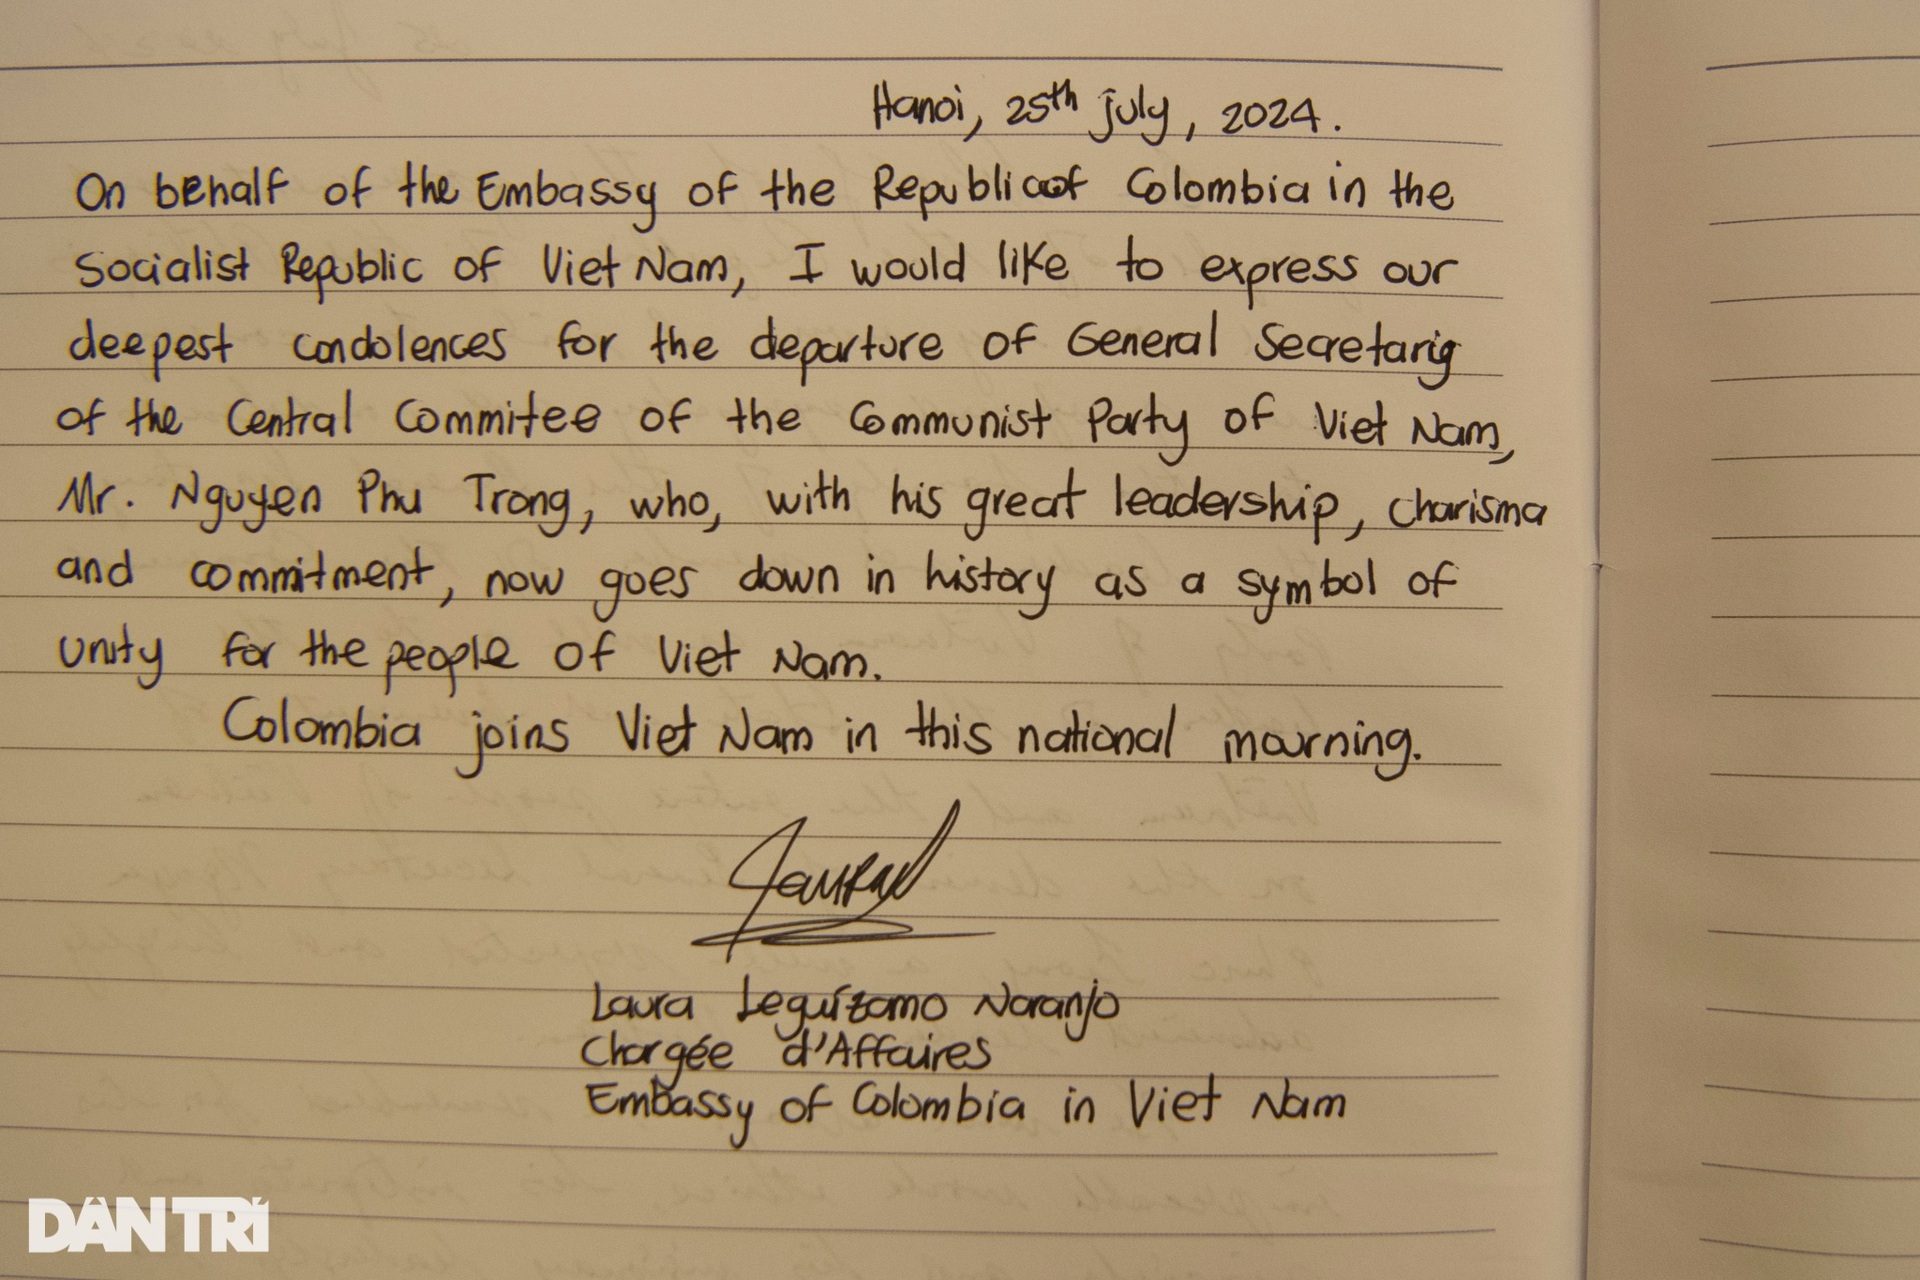 Hanoi, 25th july, 2024.
On behalf of the Embassy of the Republic of Colombia in the
Socialist Republic of Viet Nam, I would like to express our
deepest condolences for the departure of General Secretary
of the Central Commitee of the Communist Party of Viet Nam,
Mr. Nguyen Phu Trong, who, with his great leadership, charisma
and commitment, now goes down in history as a symbol of
unity for the people of Viet Nam.
Colombia joins Viet Nam in this national mourning.
Laura Leguízamo Naranjo
Chargée d'Affaires
Embassy of Colombia in Viet Nam
DÂN TRÍ